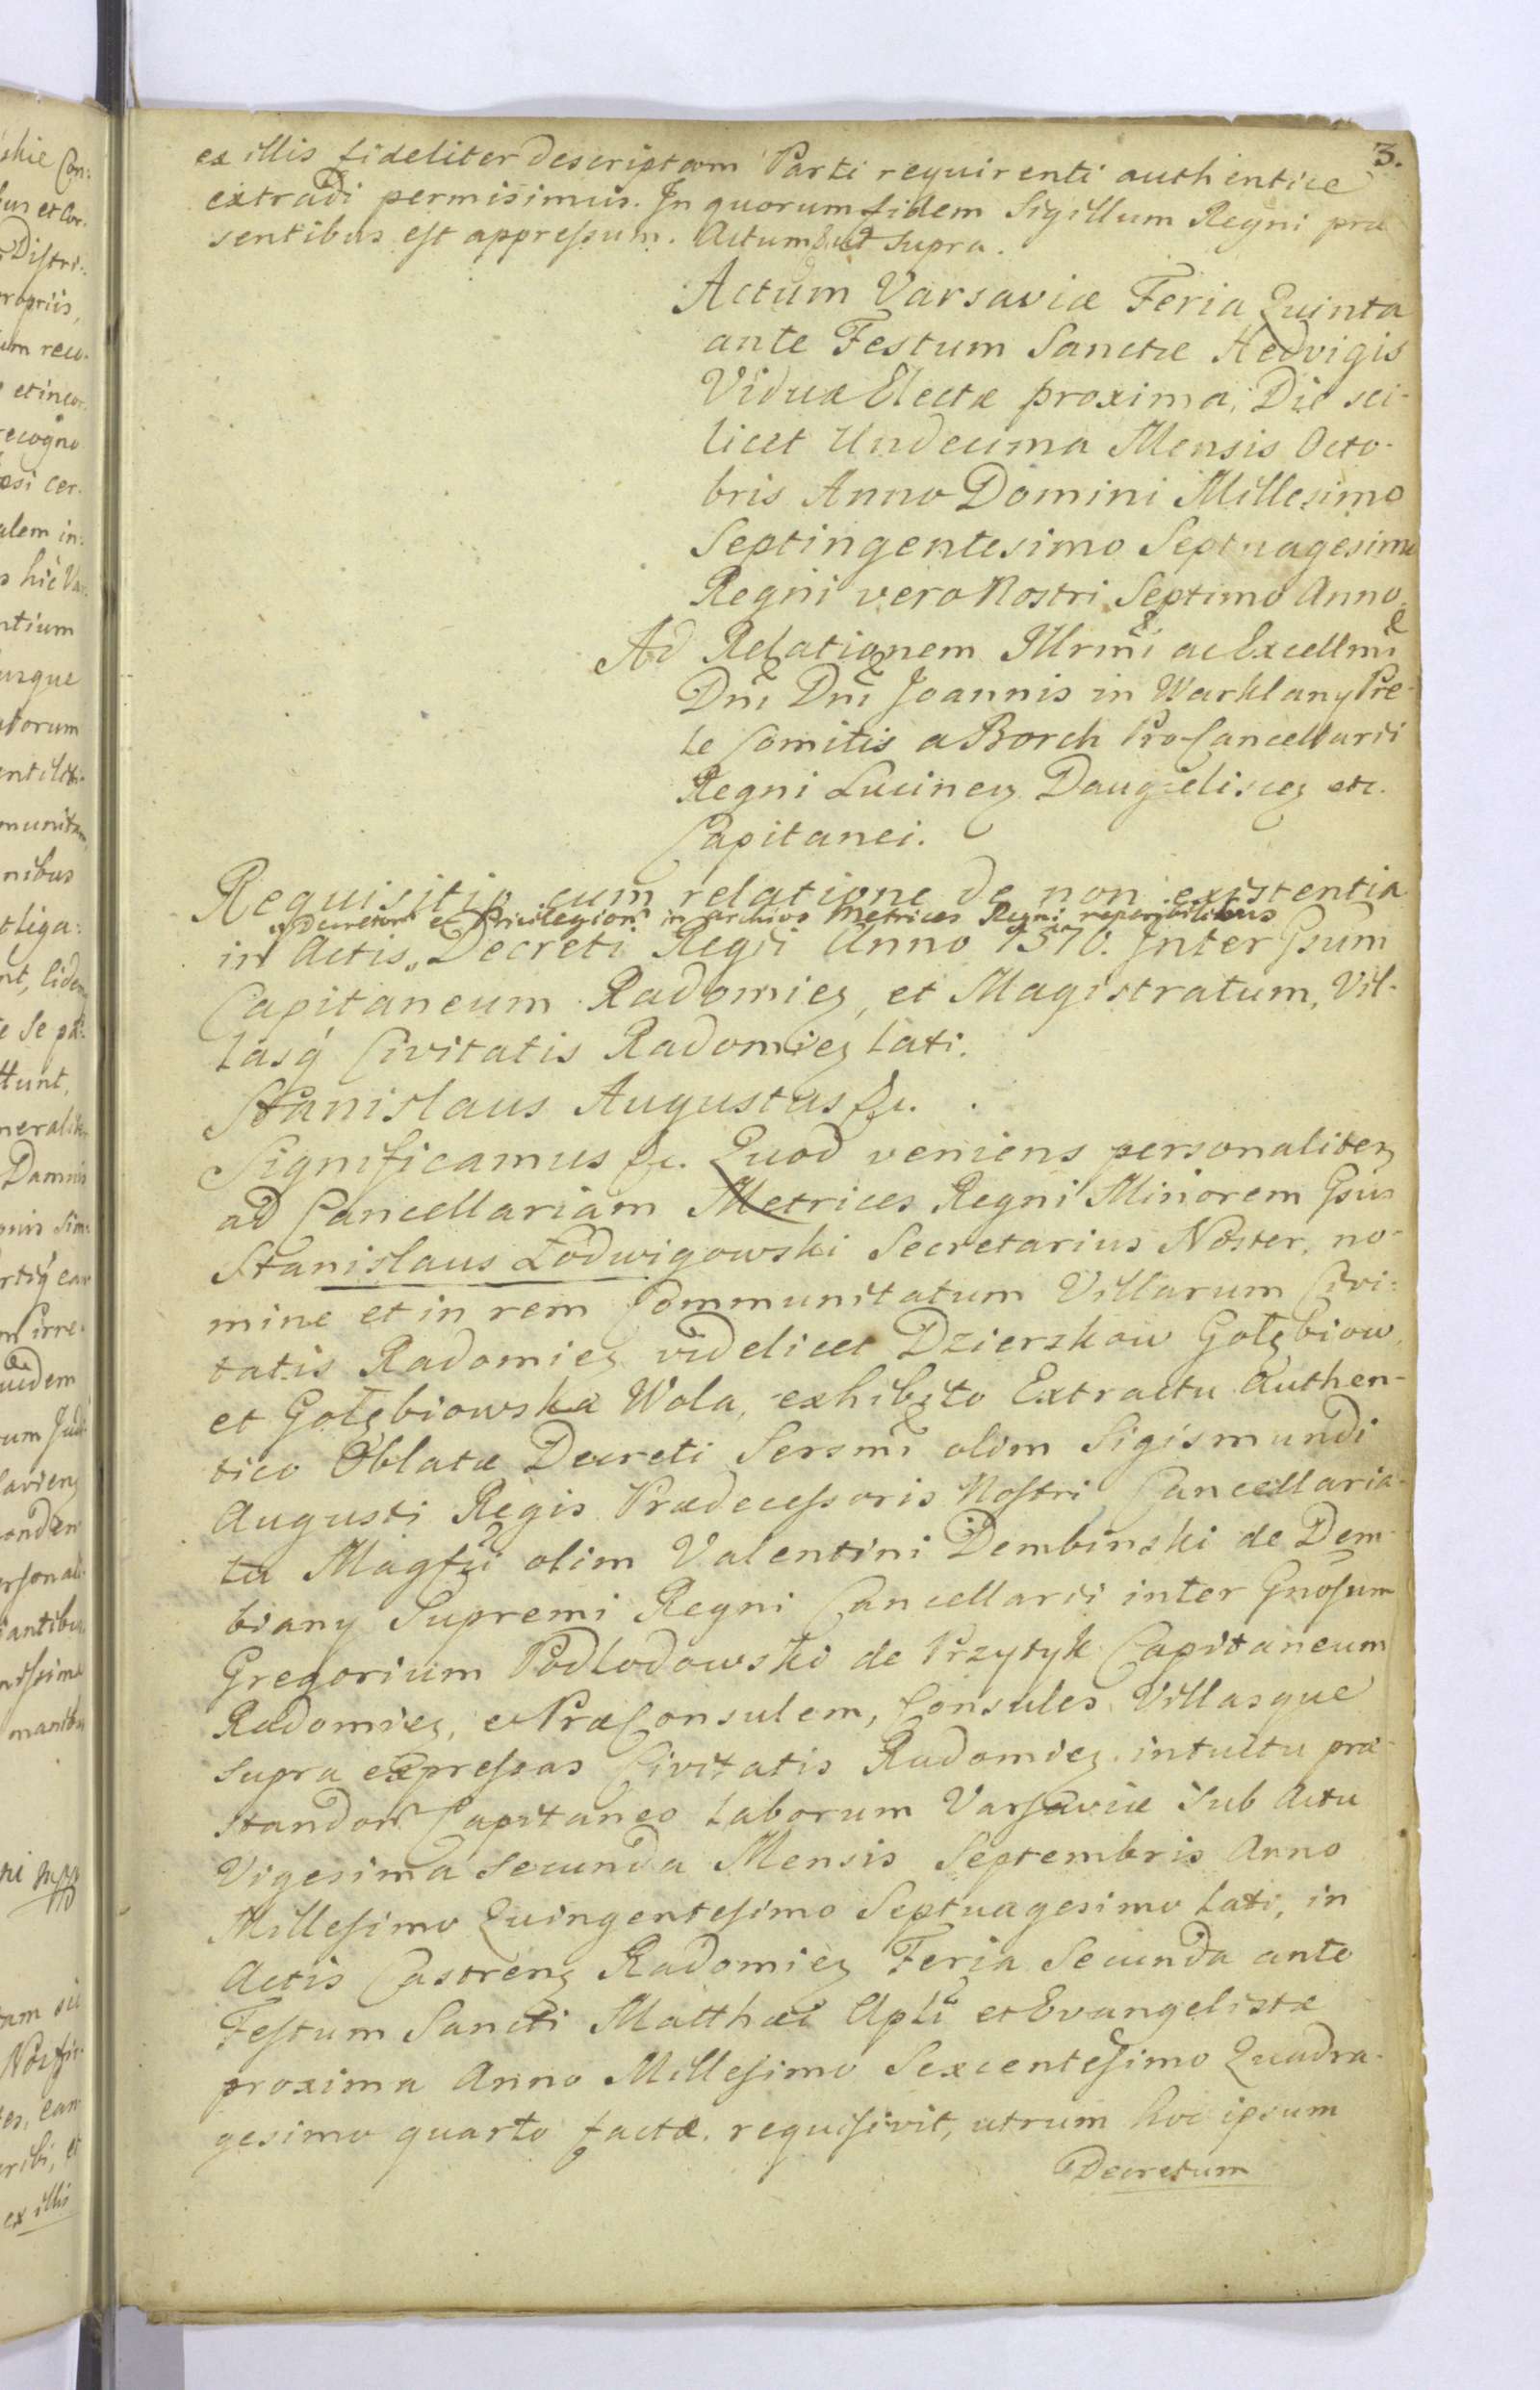 3.
ex illis fideliter descriptam Parti requirenti authentice
extradi permisimus. In quorum fidem Sigillum Regni præ
sentibus est appressum. Actum ut supra.
Actum Varsaviæ Feria Quinta
ante Festum Sanctæ Hedvigis
Viduæ Electæ proxima, Die sci-
licet Undecima Mensis Octo-
bris Anno Domini Millesimo
Septingentesimo Septuagesimo
Regni vero Nostri Septimo Anno.
Ad Relationem Illrmi ac Excellmi
Dni Dni Joannis in Warklany Pre-
le Comitis a Borch Pro-Cancellarii
Regni Lucinen Daugielisen etc.
Capitanei.
Requisitio cum relatione de non existentia
Decretor et Privilegior in archivo Metrices Regni reperibilibus
in Actis Decreti Regii Anno 1570. Inter Gsum
Capitaneum Radomien, et Magistratum, Vil-
lasq Civitatis Radomien lati.
Stanislaus Augustus &c.
Significamus &c. Quod veniens personaliter
ad Cancellariam Metrices Regni Minorem Gsus
Stanislaus Łodwigowski Secretarius Noster, no-
mine et in rem Communitatum Villarum Civi-
tatis Radomien videlicet Dzierzkow Gołębiow,
et Gołębiowska Wola, exhibito Extractu Authen-
tico Oblatæ Decreti Sersmi olim Sigismundi
Augusti Regis Prædecessoris Nostri Cancellaria-
tu Magfci olim Valentini Dembinski de Dem-
biany Supremi Regni Cancellarii inter Gnosum
Gregorium Podlodowski de Przytyk Capitaneum
Radomien, et PræConsulem, Consules Villasque
supra expressas Civitatis Radomien intuitu præ-
standor Capitaneo laborum Varsaviæ sub Actu
Vigesima secunda Mensis Septembris Anno
Millesimo Quingentesimo Septuagesimo lati, in
Actis Castren Radomien Feria Secunda ante
Festum Sancti Matthæi Apli et Evangelistæ
proxima Anno Millesimo Sexcentesimo Quadra-
gesimo quarto factæ. requisivit, utrum hoc ipsum
Decretum